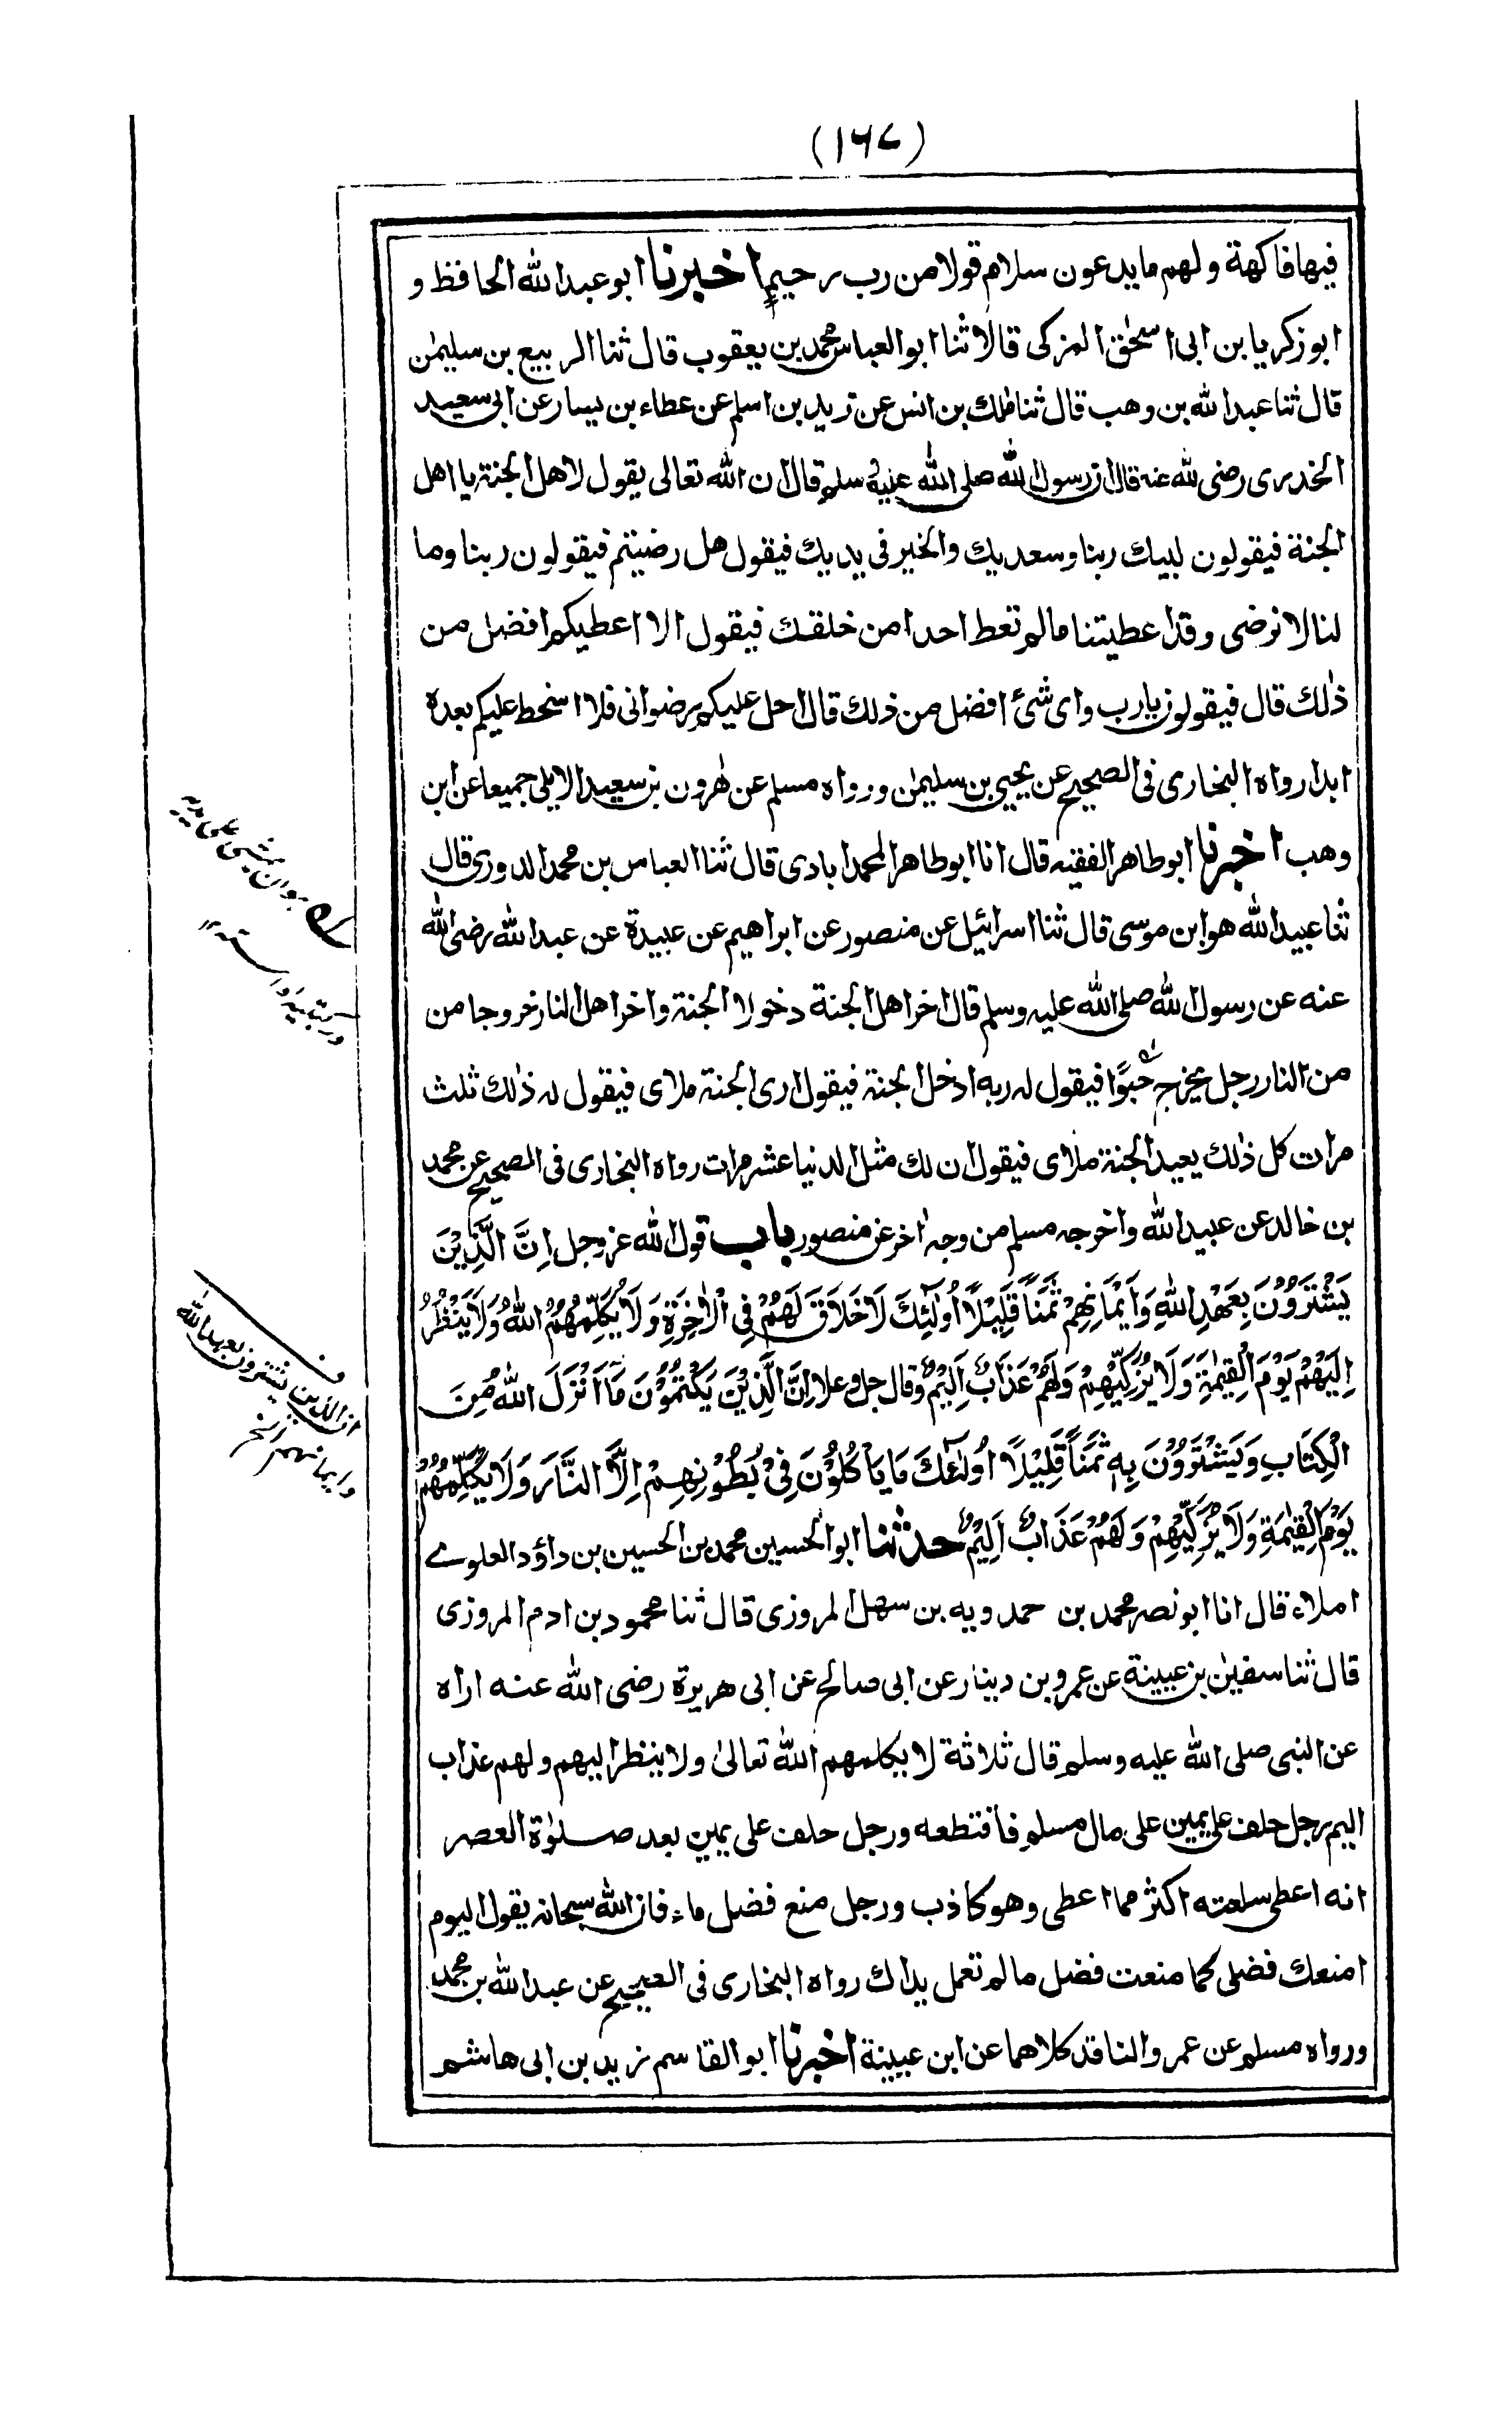 (١٦٧)
فيها فاكهة ولهم ما يدعون سلام قولا من رب رحيم اخبرنا ابو عبد الله الحافظ و
ابو زكريا بن ابى اسحٰق المزكى قالا ثنا ابو العباس محمد بن يعقوب قال ثنا الربيع بن سليمٰن
قال ثنا عبد الله بن وهب قال ثنا مٰلك بن انس عن زيد بن اسلم عن عطاء بن يسار عن ابى سعيد
الخدرى رضى الله عنه قال ان رسول الله صلى الله عليه وسلم قال ان الله تعالى يقول لاهل الجنة يا اهل
الجنة فيقولون لبيك ربنا وسعديك والخير فى يديك فيقول هل رضيتم فيقولون ربنا وما
لنا لا نرضى وقد اعطيتنا ما لم تعط احدا من خلقك فيقول الا اعطيكم افضل من
ذٰلك قال فيقولون يارب واى شئ افضل من ذلك قال احل عليكم رضوانى فلا اسخط عليكم بعده
ابدا رواه البخارى فى الصحيح عن يحيى بن سليمٰن ورواه مسلم عن هٰرون بن سعيد الايلى جميعا عن ابن
وهب اخبرنا ابو طاهر الفقيه قال انا ابو طاهر المحمدابادى قال ثنا العباس بن محمد الدورى قال
ثنا عبيد الله هو ابن موسى قال ثنا اسرائيل عن منصور عن ابراهيم عن عبيدة عن عبد الله رضى الله
عنه عن رسول الله صلى الله عليه وسلم قال اخر اهل الجنة دخولا الجنة واخر اهل النار خروجا من
من النار رجل يخرج حبوًا فيقول له ربه ادخل الجنة فيقول ارى الجنة ملاى فيقول له ذٰلك ثلث
مرات كل ذٰلك يعيد الجنة ملاى فيقول ان لك مثل الدنيا عشر مرات رواه البخارى فى الصحيح عن محمد
بن خالد عن عبيد الله واخرجه مسلم من وجه اخر عن منصور باب قول الله عز وجل اِنَّ الَّذِيْنَ
يَشْتَرُوْنَ بِعَهْدِ اللّٰهِ وَاَيْمَانِهِمْ ثَمَنًا قَلِيْلًا اُولٰٓئِكَ لَا خَلَاقَ لَهُمْ فِى الْاٰخِرَةِ وَلَا يُكَلِّمُهُمُ اللّٰهُ وَلَا يَنْظُرُ
اِلَيْهِمْ يَوْمَ الْقِيٰمَةِ وَلَا يُزَكِّيْهِمْ وَلَهُمْ عَذَابٌ اَلِيْمٌ وقال جل وعلا اِنَّ الَّذِيْنَ يَكْتُمُوْنَ مَا اَنْزَلَ اللّٰهُ مِنَ
الْكِتَابِ وَيَشْتَرُوْنَ بِهٖ ثَمَنًا قَلِيْلًا اُولٰٓئِكَ مَا يَاْكُلُوْنَ فِىْ بُطُوْنِهِمْ اِلَّا النَّارَ وَلَا يُكَلِّمُهُمُ
يَوْمَ الْقِيٰمَةِ وَلَا يُزَكِّيْهِمْ وَلَهُمْ عَذَابٌ اَلِيْمٌ حدثنا ابو الحسين محمد بن الحسين بن داؤد العلوى
املاء قال انا ابو نصر محمد بن حمدويه بن سهل المروزى قال ثنا محمود بن ادم المروزى
قال ثنا سفيٰن بن عيينة عن عمرو بن دينار عن ابى صالح عن ابى هريرة رضى الله عنه اراه
عن النبى صلى الله عليه وسلم قال ثلاثة لا يكلمهم الله تعالىٰ ولا ينظر اليهم ولهم عذاب
اليم رجل حلف على يمين على مال مسلم فاقتطعه ورجل حلف على يمين بعد صلوٰة العصر
انه اعطى سلعته اكثر مما اعطى وهو كاذب ورجل منع فضل ماء فان الله سبحانه يقول اليوم
امنعك فضلى كما منعت فضل ما لم تعمل يداك رواه البخارى فى الصحيح عن عبد الله بن محمد
ورواه مسلم عن عمرو الناقد كلاهما عن ابن عيينة اخبرنا ابو القاسم زيد بن ابى هاشم
ان يمشى على يديه
وركبتيه او استه
ان الذين يشترون بعهد الله
وايمانهم الخ